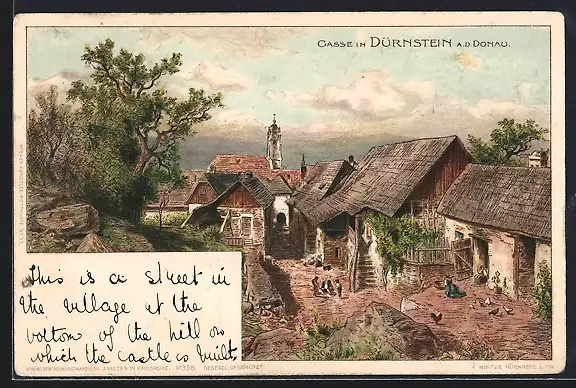 GASSE IN DÜRNSTEIN A.D. DONAU.
This is a street in
the village at the
bottom of the hill on
which the castle is built.
VERLAG DER KUNSTHANDLUNG J. VELTEN IN KARLSRUHE. No 358 GESETZL. GESCHÜTZT.
E. NISTER NÜRNBERG LITH.